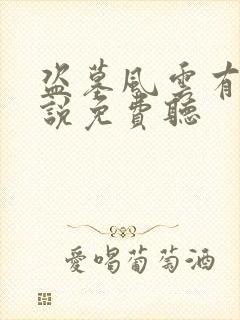 盜墓風雲有
說免費聽
愛喝葡萄酒